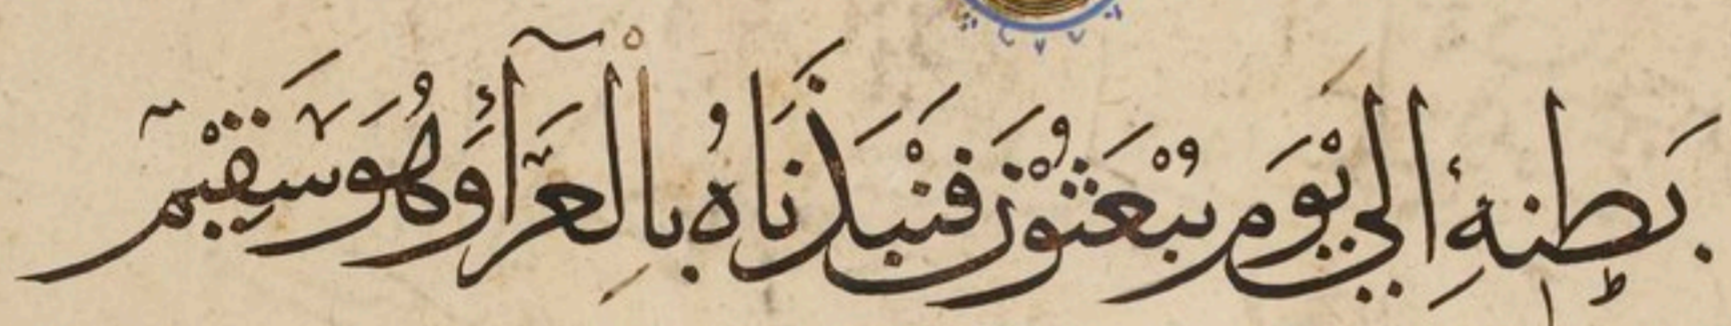 بَطنهِ الي يَوْمِ يُبْعَثُوْنَ فَنَبَذْنَاهُ بِالْعَرَآءِ وَهُوَ سَقِيْمٌ